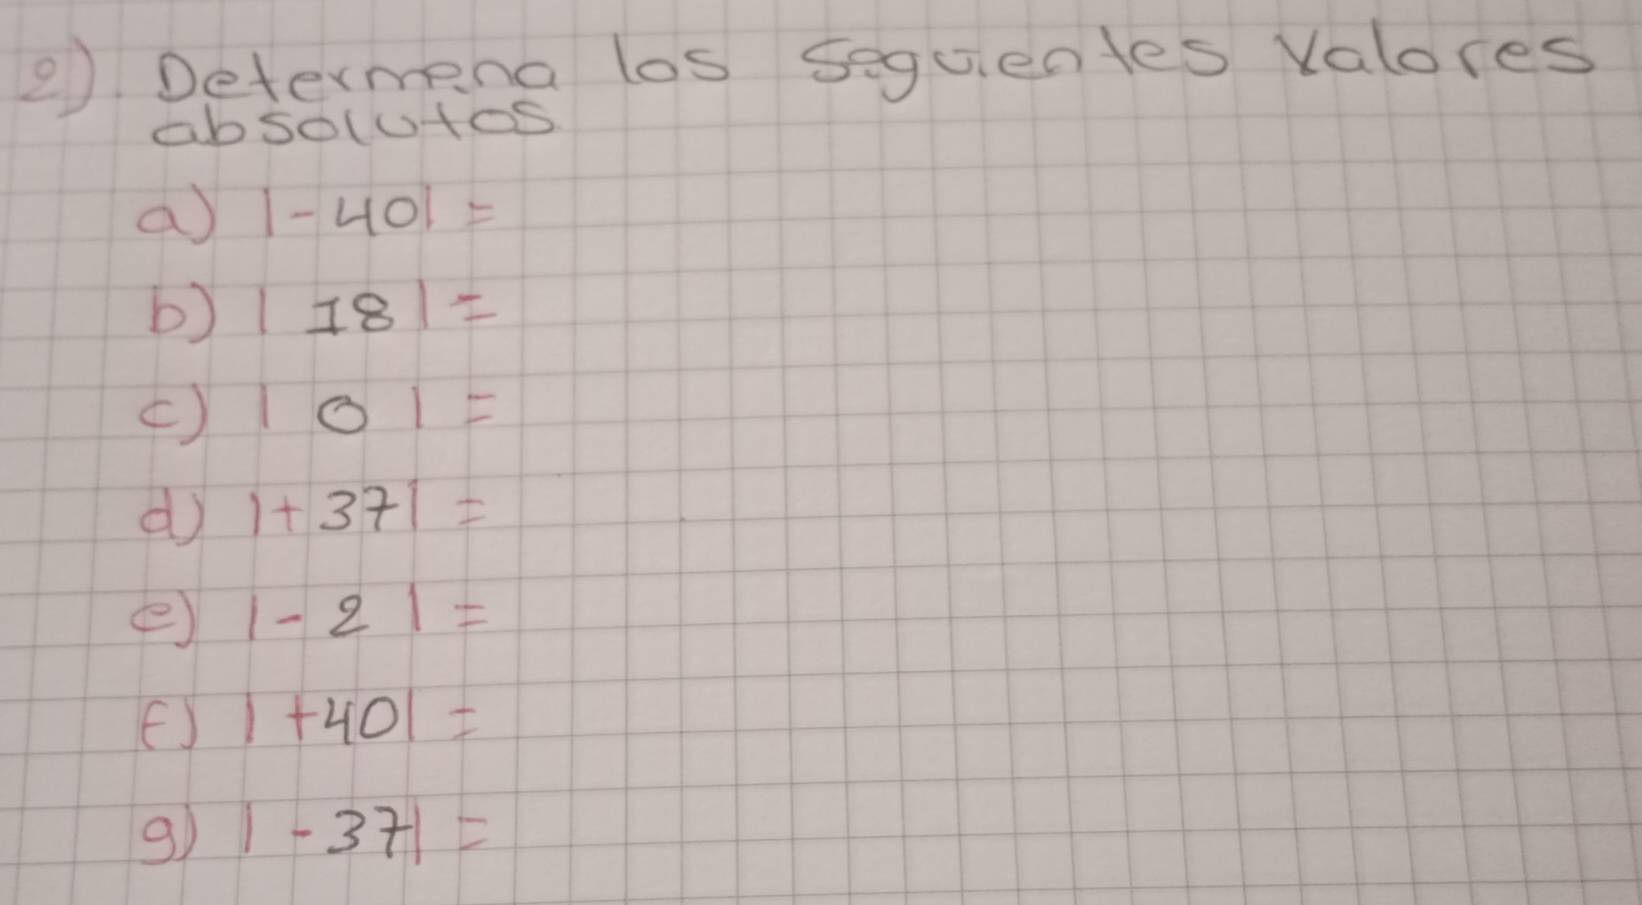 2) Determena los seguientes valores
absolutos
a) |-40| =
b) | 18 | =
c) | 0 | =
d) |+37| =
e) |-2 | =
f) |+40| =
g) |-37| =